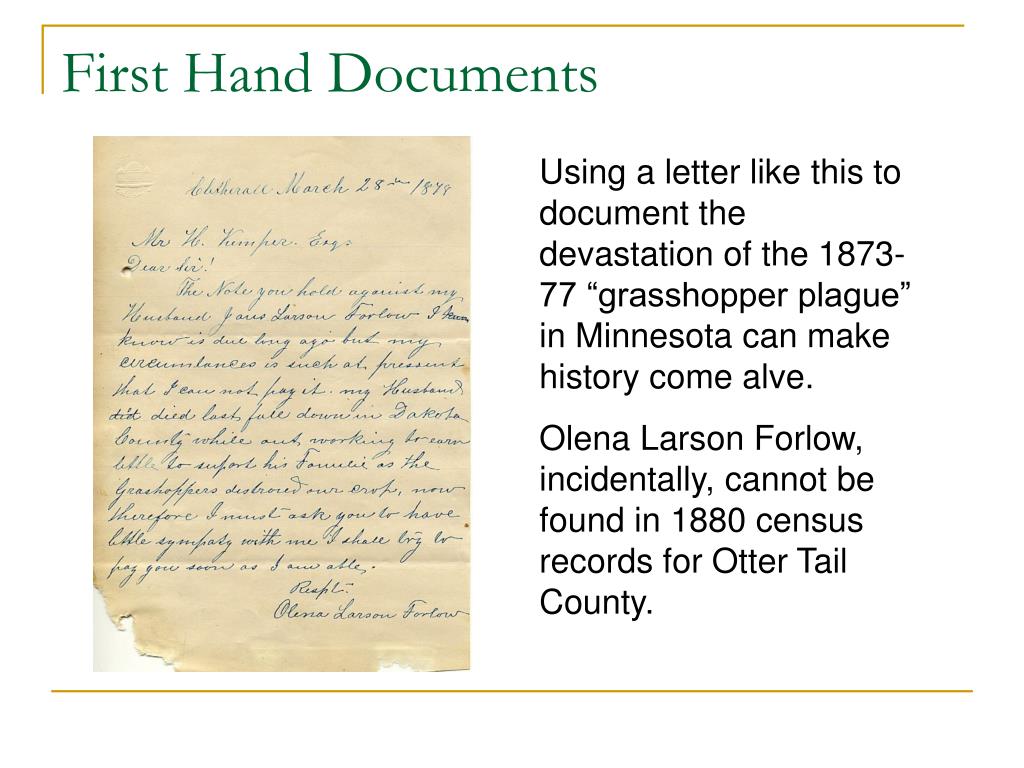 First Hand Documents
Clitherall March 28th 1878
Mr H. Kemper. Esq.
Dear Sir!
The Note you hold against my
Husband Jans Larson Forlow I
know is due long ago but my
circumlances is such at pressent
that I can not pay it. my Husband
did died last fall down in Dakota
County while out working to earn
little to suport his Familie as the
Grashoppers distroied our crop, now
therefore I must ask you to have
little sympaty with me I shall try to
pay you soon as I am able.
Respt.
Olena Larson Forlow
Using a letter like this to
document the
devastation of the 1873-
77 “grasshopper plague”
in Minnesota can make
history come alve.
Olena Larson Forlow,
incidentally, cannot be
found in 1880 census
records for Otter Tail
County.